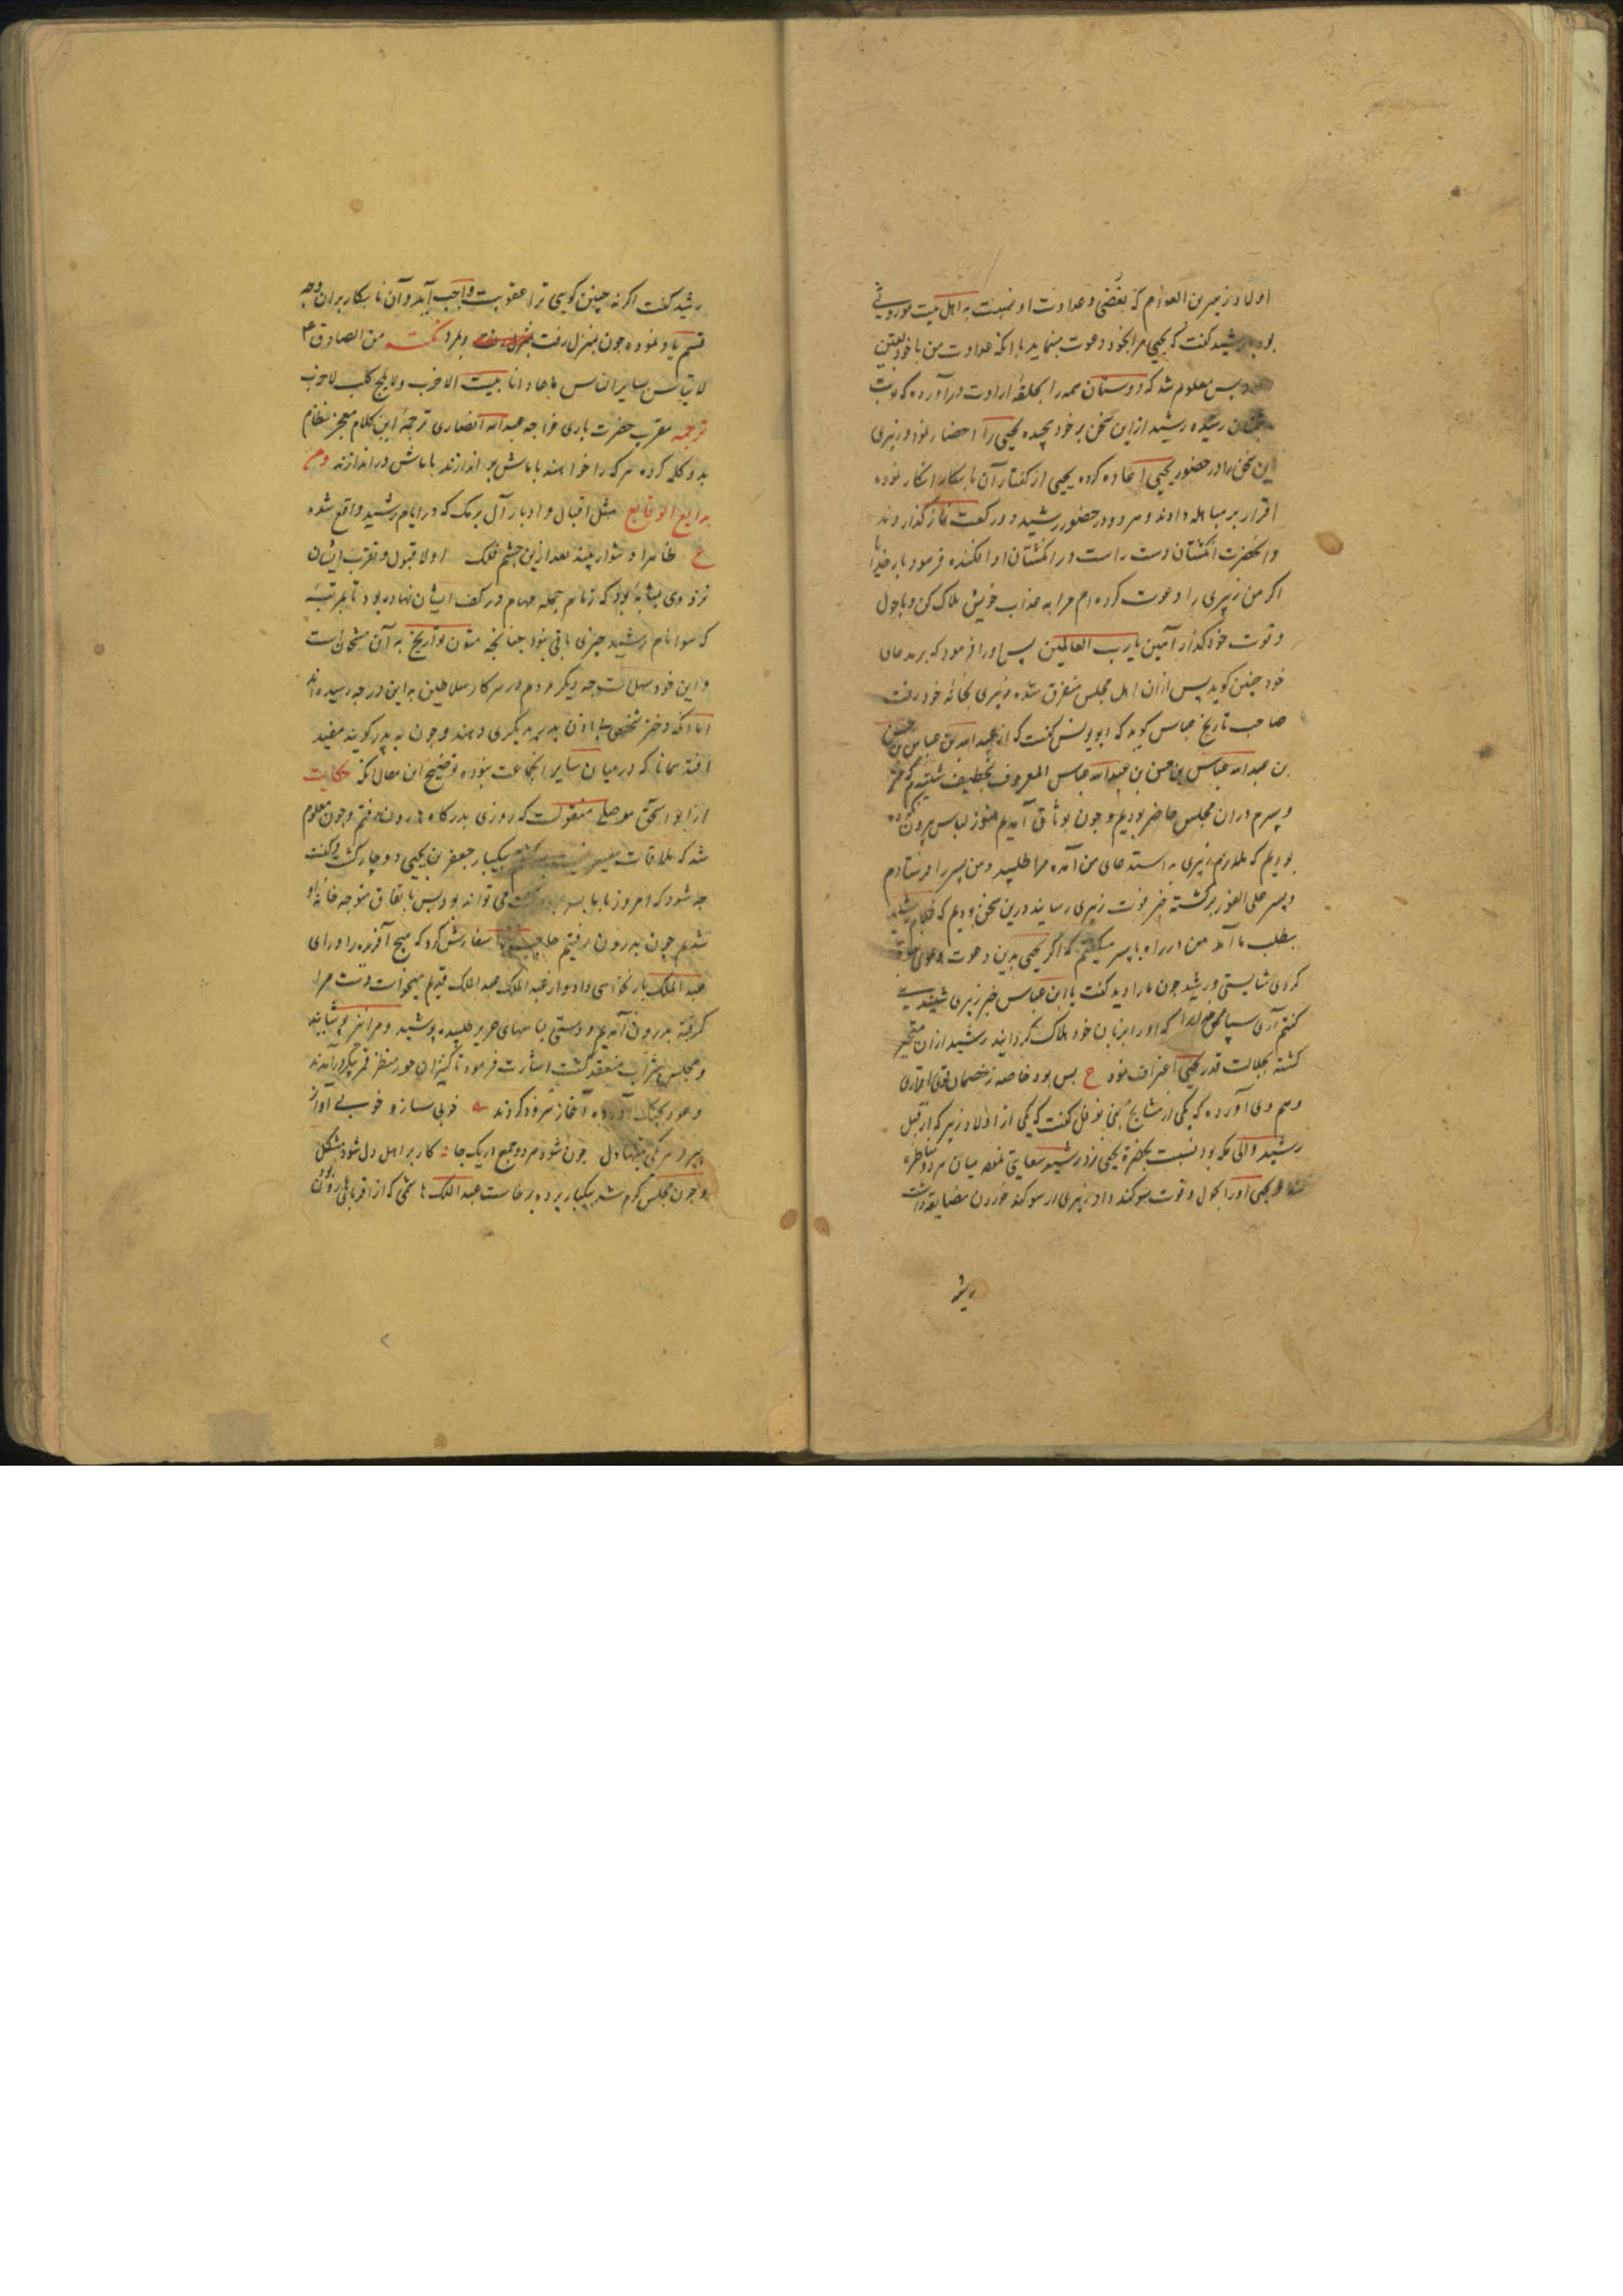 اولاد زبیر بن العوام که بغض و عداوت او نسبت به اهل بیت موروثی
بود با رشید گفت که یحیی مرا بخود دعوت مینماید با آنکه عداوت من با خود یقین
پس معلوم شد که دوستان همه را بحلقه ارادت درآورده که نوبت
رسیده رشید ازین سخن بر خود پیچیده یحیی را احضار نمود و زبیری
این سخن را در حضور یحیی اعاده کرده یحیی از گفتار آن نابکار انکار نموده
اقرار بر مباهله دادند و هر دو در حضور رشید دو رکعت نماز گذاردند
و آنحضرت انگشتان دست راست در انگشتان او افکنده فرمود بار خدایا
اگر من زبیری را دعوت کرده ام مرا به عذاب خویش هلاک کن و با حول
و قوت خود گذار آمین یا رب العالمین پس او را فرمود که بر مدعای
خود چنین گوید پس از آن اهل مجلس متفرق شده زبیری بخانه خود رفت
صاحب تاریخ عباس گوید که ابو یونس گفت که از عبدالله بن عباس بن حسن
بن عبدالله عباس بن حسن بن عبدالله عباس المعروف بخطیف شنیدم که
و پسرم در آن مجلس حاضر بودیم و چون بوثاق آمدیم هنوز لباس بیرون
بودیم که ملازم زبیری به استدعای من آمده مرا طلبید و من پسر را فرستادم
و پسر علی الفور برگشته خبر فوت زبیری رسانید درین سخن بودیم که غلام رشید
بطلب ما آمد من در راه با پسر میگفتم که اگر یحیی بدین دعوت دعوی
کردی شایستی و رشید چون ما را دید گفت یا ابن عباس خبر زبیری شنیدی
گفتم آری سپاس خدایرا که او را بزبان خود هلاک گردانید رشید از آن متحیر
گشته بجلالت قدر یحیی اعتراف نمود ع بس بود خاصه ز خصمان قوی اقراری
و هم وی آورده که یکی از مشایخ بنی نوفل گفت که یکی از اولاد زبیر که از قبل
رشید والی مکه بود نسبت بحضرة یحیی نزد رشید سعایتی نمود میان هر دو مناظره
شد و یحیی او را بحول و قوت سوگند داد زبیری در سوگند خوردن مضایقه داشت
رشید
رشید گفت اگر نه چنین گویی ترا عقوبت واجب آید و آن نابکار بر آن وجه
قسم یاد نموده چون بمنزل رفت بمرد نکته من الصادق ع
لا یقاس بسایر الناس ماجاد انا بیت الاخرب ولا یلج کلب لاخرب
ترجمه مقرب حضرت باری خواجه عبدالله انصاری ترجمهٔ این کلام معجز نظام
بدو کلمه کرده هر که را خواهند با ماش بر اندازند با ماش در اندازند ومن
بدایع الوقایع مثل اقبال و ادبار آل برمک که در ایام رشید واقع شده
ع ظاهرا دشوار بیند بعد ازین چشم فلک اولا قبول و تقرب ایشان
نزد وی بمثابه بود که زمام جمله مهام در کف ایشان نهاده بود تا بمرتبهٔ
که سوا نام رشید چیزی باقی نبود چنانچه متون تواریخ به آن مشحون است
و این خود سهل است چه دیگر مردم در سرکار سلاطین به این درجه رسیده اند
اما آنکه دختر شخصی بی اذن پدر بدیگری دهند و چون به پدر گویند مفید
افتد همانا که در میان سایر انجماعت نبوده توضیح این مقال آنکه حکایت
از ابو اسحق موصلی منقولست که روزی بدرگاه هارون رفتم و چون معلوم
شد که ملاقات میسر نیست بیکبار جعفر بن یحیی دوچار گشت و گفت
چه شود که امروز با ما بسر بری می تواند بود پس باتفاق متوجه خانه او
شدیم چون بدرون رفتیم حاجب را سفارش کرد که هیچ آفریده را ورای
عبدالملک بار ندهی و او از عبدالملک عبدالملک قدیم میخواست دست مرا
گرفته بدرون آمدیم و دستی لباسهای حریر طلبیده پوشید و مرا نیز پوشانید
و مجلس شراب منعقد گشت اشارت فرمود تا کنیزان حور منظر قمر پیکر درآمدند
و عود بچنگ آورده آغاز سرود کردند خوبی ساز و خوبی آواز
میبرد هر یکی بتنها دل چون شود هر دو جمع در یک جا کار بر اهل دل شود مشکل
و چون مجلس گرم شد بیکبار پرده برخاست عبدالملک هاشمی که از اقربای هارون بود